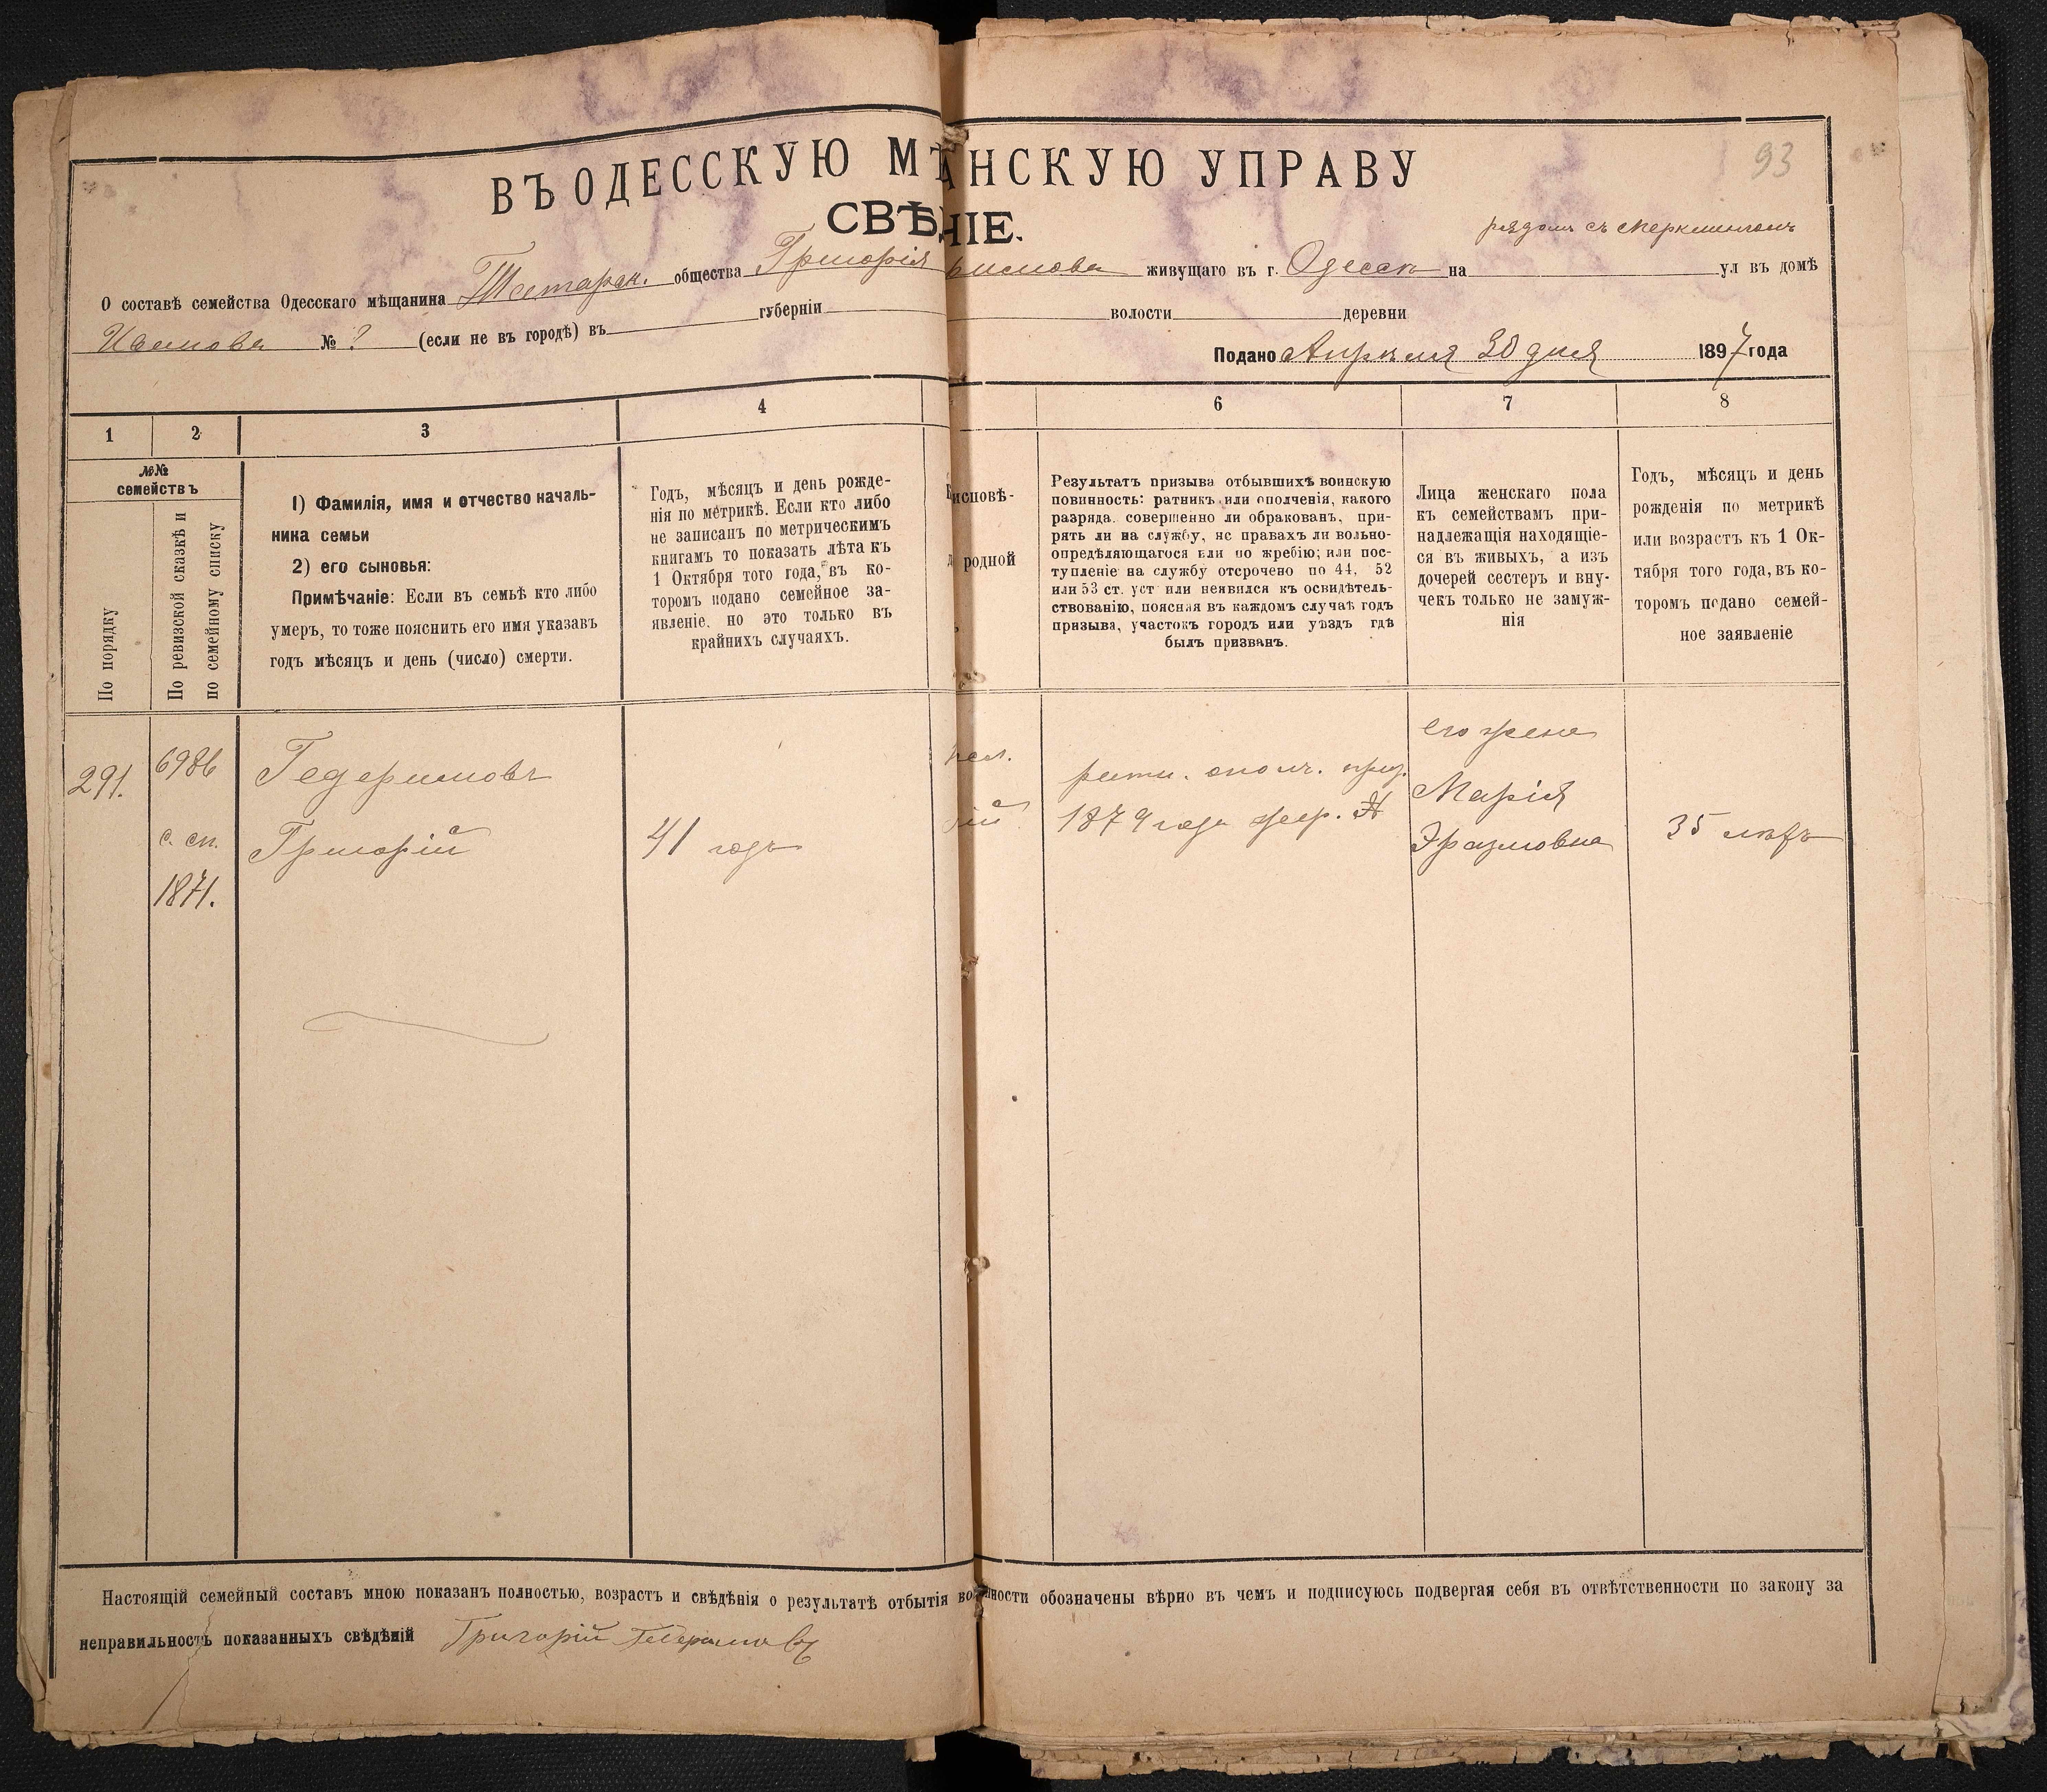 93
ВЪ ОДЕССКУЮ МѢ АНСКУЮ УПРАВУ
СВѢ НІЕ.
рядомъ съ
О составѣ семейства Одесскаго мѣщанина общества Григорія живущаго въ г. Одессѣ на ул въ домѣ
Иванова № ? (если не въ городѣ) въ губерніи волости деревни
Подано Апрѣля 30 дня 1897 года
1 2 3 4 6 7 8
№№ семействъ
По порядку
По ревизской сказкѣ и
по семейному списку
1) Фамилія, имя и отчество началь-
ника семьи
2) его сыновья:
Примѣчаніе: Если въ семьѣ кто либо
умеръ, то тоже пояснить его имя указавъ
годъ мѣсяцъ и день (число) смерти.
Годъ, мѣсяцъ и день рожде-
нія по метрикѣ. Если кто либо
не записанъ по метрическимъ
книгамъ то показать лѣта къ
1 Октября того года, въ ко-
торомъ подано семейное за-
явленіе. но это только въ
крайнихъ случаяхъ.
исповѣ-
родной
Результатъ призыва отбывшихъ воинскую
повинность: ратникъ или ополченія, какого
разряда. совершенно ли обракованъ, при-
рять ли на службу, нс правахъ ли вольно-
опредѣляющагося или по жребію; или пос-
тупленіе на службу отсрочено по 44, 52
или 53 ст. уст или неявился къ освидѣтель-
ствованію, поясняя въ каждомъ случаѣ годъ
призыва, участокъ городъ или уѣздъ гдѣ
былъ призванъ.
Лица женскаго пола
къ семействамъ при-
надлежащія находящіе-
ся въ живыхъ, а изъ
дочерей сестеръ и вну-
чекъ только не замуж-
нія
Годъ, мѣсяцъ и день
рожденія по метрикѣ
или возрастъ къ 1 Ок-
тября того года, въ ко-
торомъ подано семей-
ное заявленіе
его жена
291. 6986 Гедеримовъ ратн. ополч. приз. Марія
с. сп. Григорій 41 годъ 1879 года жер. Эразмовна 35 лѣтъ
1871.
Настоящій семейный составъ мною показанъ полностью, возрастъ и свѣдѣнія о результатѣ отбытія во нности обозначены вѣрно въ чемъ и подписуюсь подвергая себя въ отвѣтственности по закону за
неправильность показанныхъ свѣдѣній Григорій Гедеримовъ